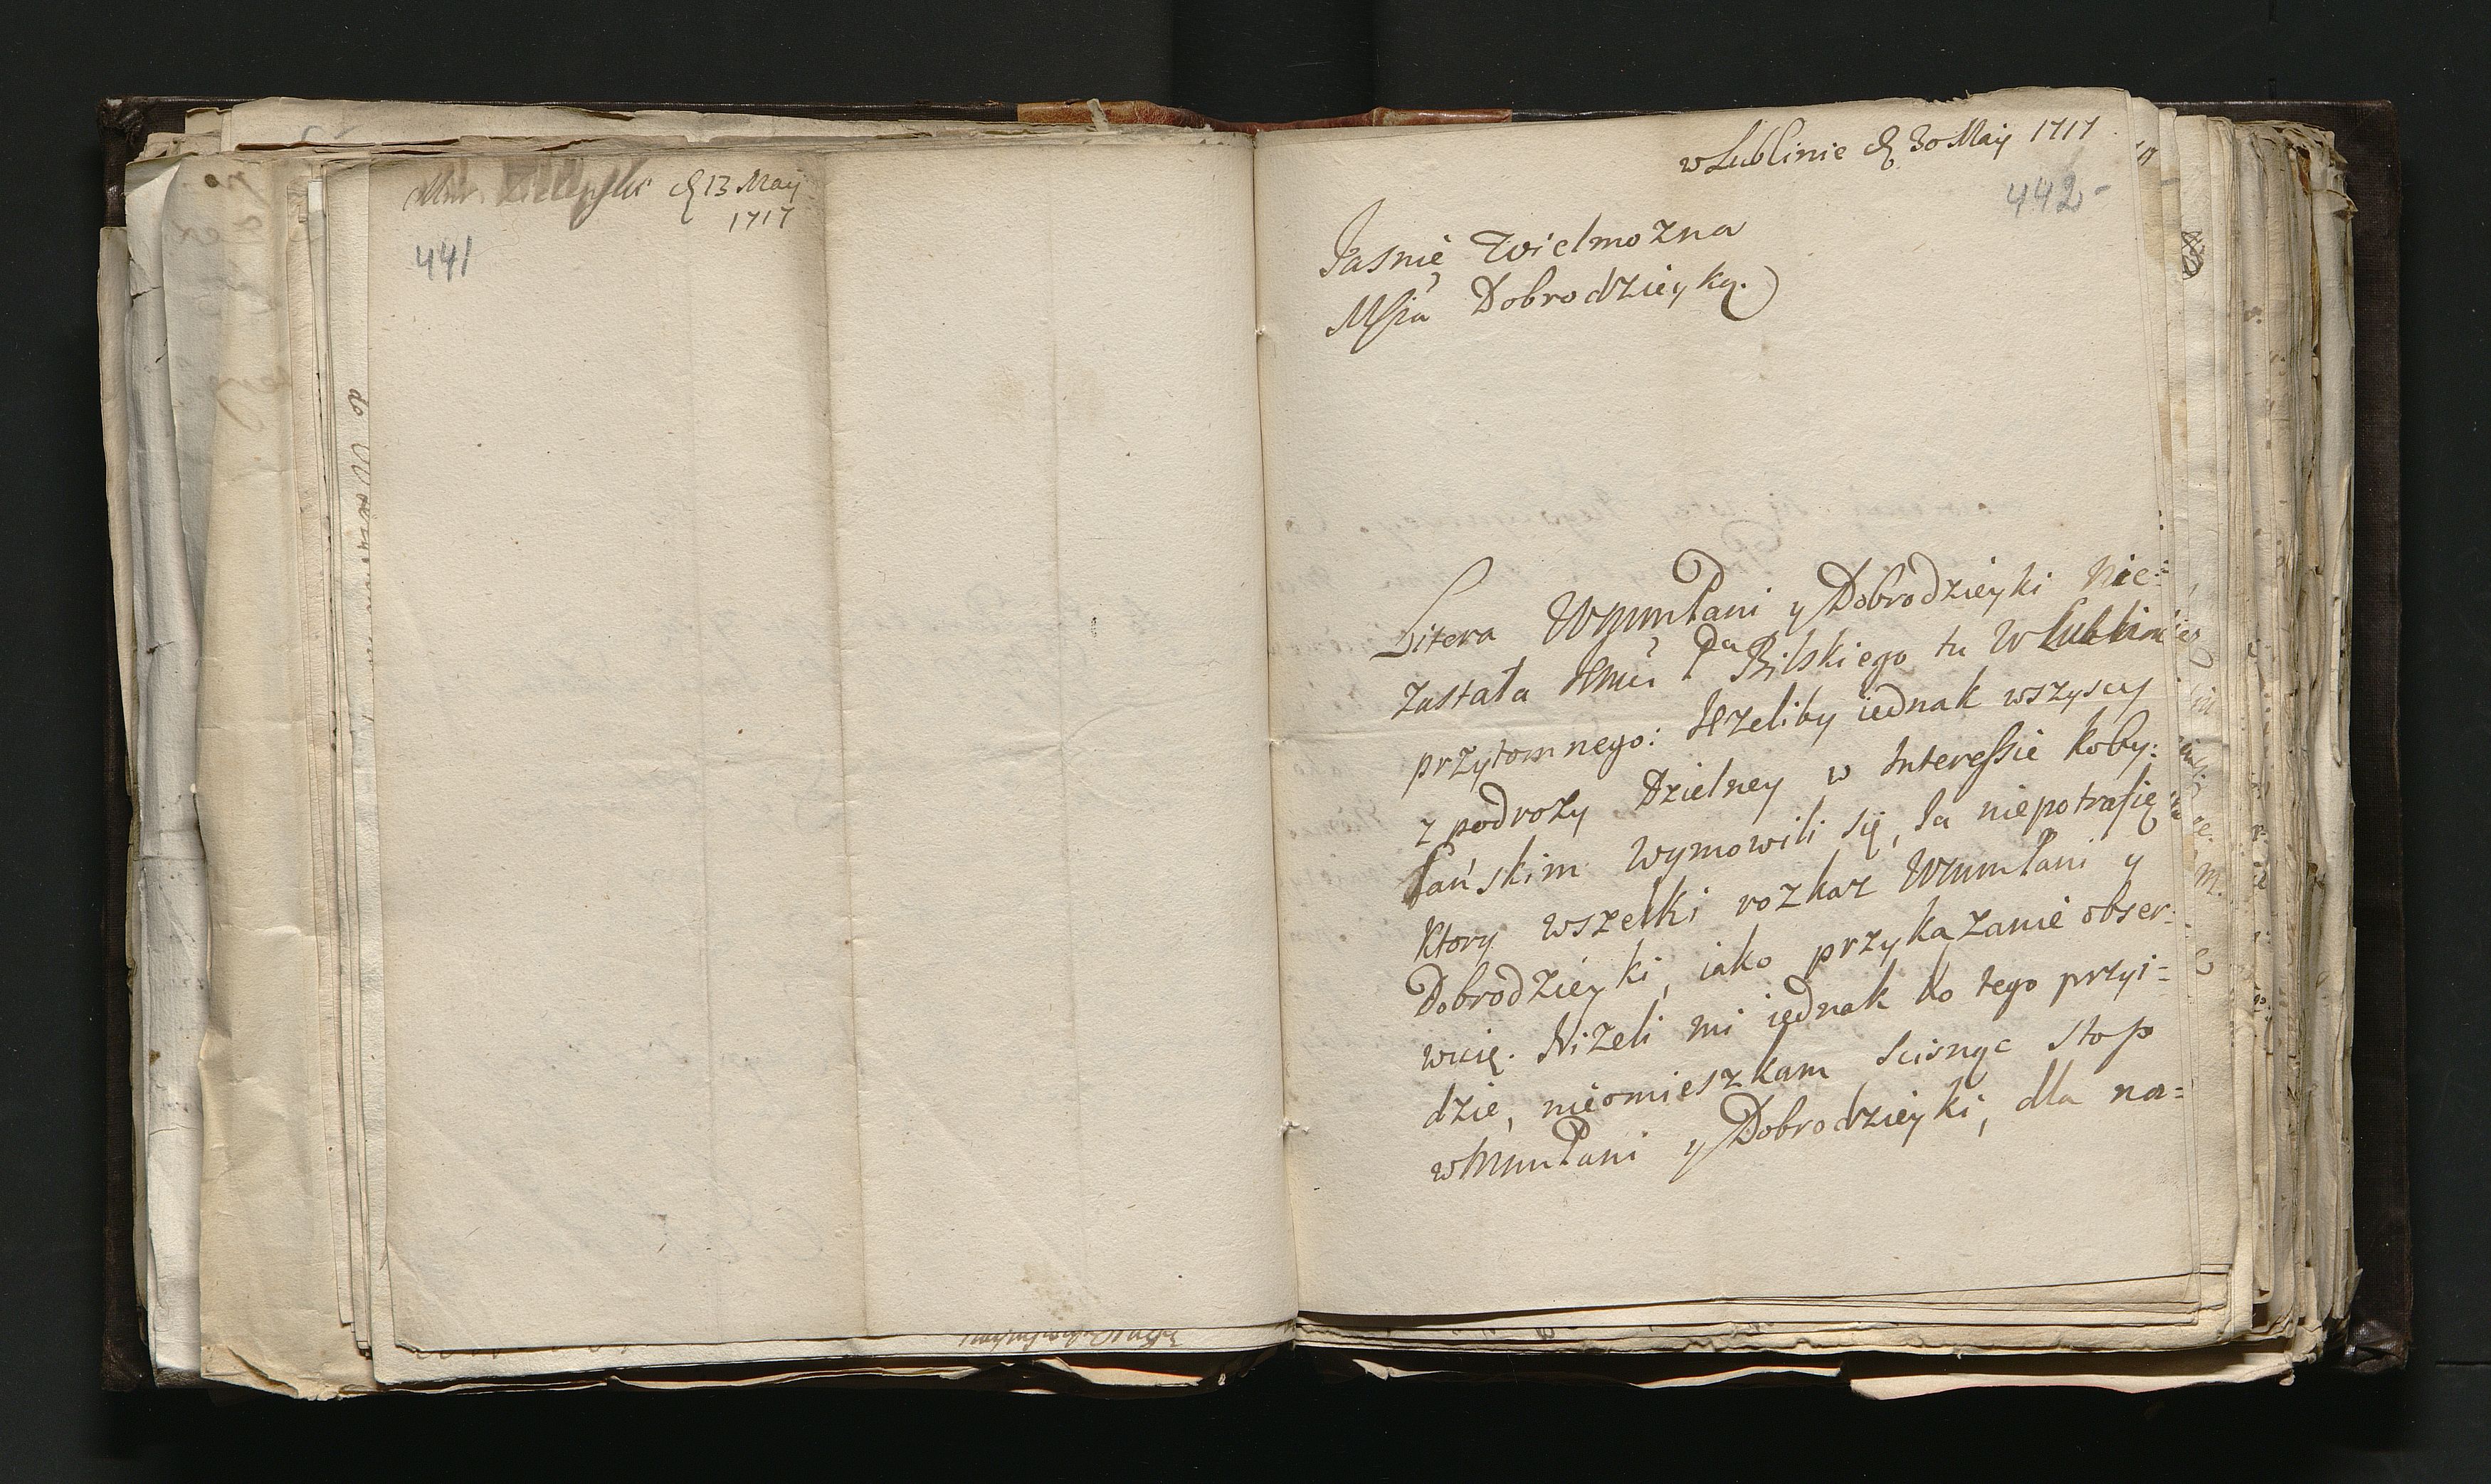 d 13 Maij
1717
441
w Lublinie d 30 Maij 1717
442
Jasnie Wielmozna
Mscia Dobrodzieyką.
Litera WMM Pani y Dobrodzieyki nie:
zastała Jmci Pa Bilskiego tu w Lublinie
przytomnego: Jezeliby iednak wszyscy
z podrozy Dzielney w Interessie koby:
łanskim wymowili się, Ja niepotrafię
ktory wszelki rozkaz WMM Pani y
Dobrodzieyki, iako przykazanie obser:
wuię. Nizeli mi iednak do tego przyi=
dzie, nieomieszkam scisnąc stop
WMM Pani y Dobrodzieyki, dla na=